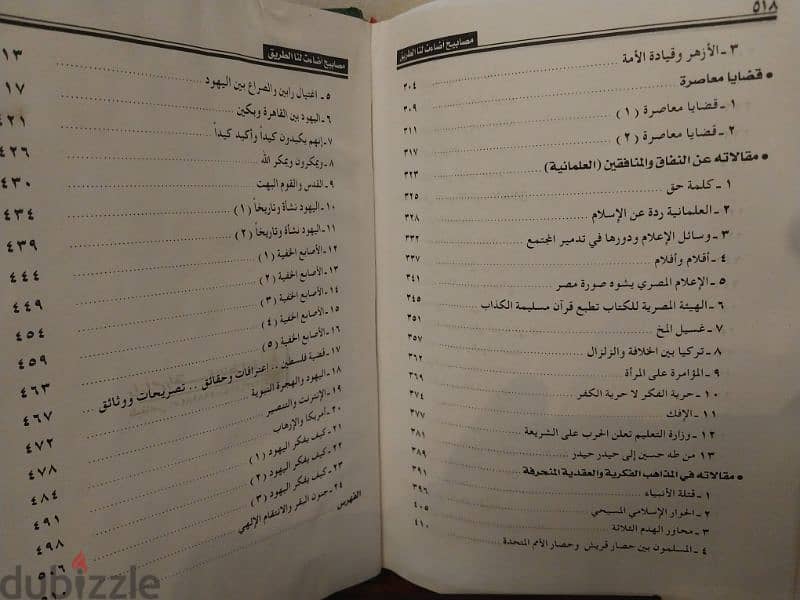 ٥١٨
مصابيح أضاءت لنا الطريق
٣ ـ الأزهر وقيادة الأمة ٣٠٤
• قضايا معاصرة ٣٠٩
١ ـ قضايا معاصرة (١) ٣١١
٢ ـ قضايا معاصرة (٢) ٣١٧
• مقالاته عن النفاق والمنافقين (العلمانية) ٣٢٣
١ ـ كلمة حق ٣٢٥
٢ ـ العلمانية ردة عن الإسلام ٣٢٨
٣ ـ وسائل الإعلام ودورها في تدمير المجتمع ٣٣٢
٤ ـ أقلام وأفلام ٣٣٧
٥ ـ الإعلام المصري يشوه صورة مصر ٣٤١
٦ ـ الهيئة المصرية للكتاب تطبع قرآن مسليمة الكذاب ٣٤٥
٧ ـ غسيل المخ ٣٥١
٨ ـ تركيا بين الخلافة والزلزال ٣٥٧
٩ ـ المؤامرة على المرأة ٣٦٢
١٠ ـ حرية الفكر لا حرية الكفر ٣٦٩
١١ ـ الإفك ٣٧٤
١٢ ـ وزارة التعليم تعلن الحرب على الشريعة ٣٧٧
١٣ من طه حسين إلى حيدر حيدر ٣٨١
• مقالاته في المذاهب الفكرية والعقدية المنحرفة ٣٨٩
١ ـ قتلة الأنبياء ٣٩١
٢ ـ الحوار الإسلامي المسيحي ٣٩٦
٣ ـ محاور الهدم الثلاثة ٤٠٥
٤ ـ المسلمون بين حصار قريش وحصار الأمم المتحدة ٤١٠
مصابيح أضاءت لنا الطريق
٥ ـ اغتيال رابين والصراع بين اليهود ١٣
٦ ـ اليهود بين القاهرة وبكين ١٧
٧ ـ إنهم يكيدون كيداً وأكيد كيداً ٤٢١
٨ ـ ويمكرون ويمكر الله ٤٢٦
٩ ـ القدس والقوم البهت ٤٣٠
١٠ ـ اليهود نشأة وتاريخاً (١) ٤٣٤
١١ ـ اليهود نشأة وتاريخاً (٢) ٤٣٩
١٢ ـ الأصابع الخفية (١) ٤٤٤
١٣ ـ الأصابع الخفية (٢) ٤٤٩
١٤ ـ الأصابع الخفية (٣) ٤٥٤
١٥ ـ الأصابع الخفية (٤) ٤٥٩
١٦ ـ الأصابع الخفية (٥) ٤٦٣
١٧ ـ قضية فلسطين .. اعترافات وحقائق .. تصريحات ووثائق ٤٦٧
١٨ ـ اليهود والهجرة النبوية ٤٧٢
١٩ ـ الإنترنت والتنصير ٤٧٨
٢٠ ـ أمريكا والإرهاب ٤٨٤
٢١ ـ كيف يفكر اليهود (١) ٤٩١
٢٢ ـ كيف يفكر اليهود (٢) ٤٩٨
٢٣ ـ كيف يفكر اليهود (٣) ٥٠٦
٢٤ ـ جنون البقر والانتقام الإلهي ٥١٠
الفهرس
dubizzle